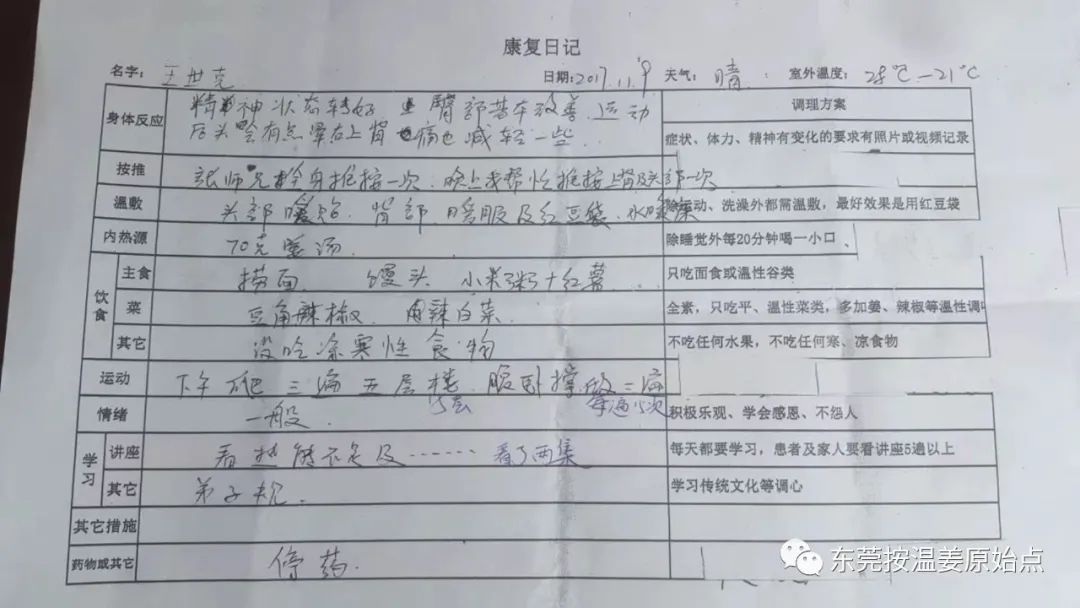 康复日记
名字: 王世克 日期: 2017.11.9 天气: 晴 室外温度: 28℃—21℃
身体反应 精神状态转好 臂部苦车改善.运动 调理方案
后头会有点晕右上背也痛也减轻一些.. 症状、体力、精神有变化的要求有照片或视频记录
按推 张师兄全身推按一次.晚上我帮忙推按上背及头部一次
温敷 头部暖贴.背部.暖服及红豆袋、水暖 除运动、洗澡外都需温敷,最好效果是用红豆袋
内热源 70克姜汤. 除睡觉外每20分钟喝一小口
饮食 主食 捞面 馒头 小米粥+红薯... 只吃面食或温性谷类
菜 豆角辣椒. 辣白菜. 全素,只吃平、温性菜类,多加姜、辣椒等温性调
其它 没吃凉寒性食物 不吃任何水果,不吃任何寒、凉食物
运动 下午爬三遍五层楼.腹卧撑做三遍
每遍15次
情绪 一般. 积极乐观、学会感恩、不怨人
学习 讲座 看热能不足及…… 看了两集 每天都要学习,患者及家人要看讲座5遍以上
其它 弟子规. 学习传统文化等调心
其它措施
药物或其它 停药.
东莞按温姜原始点